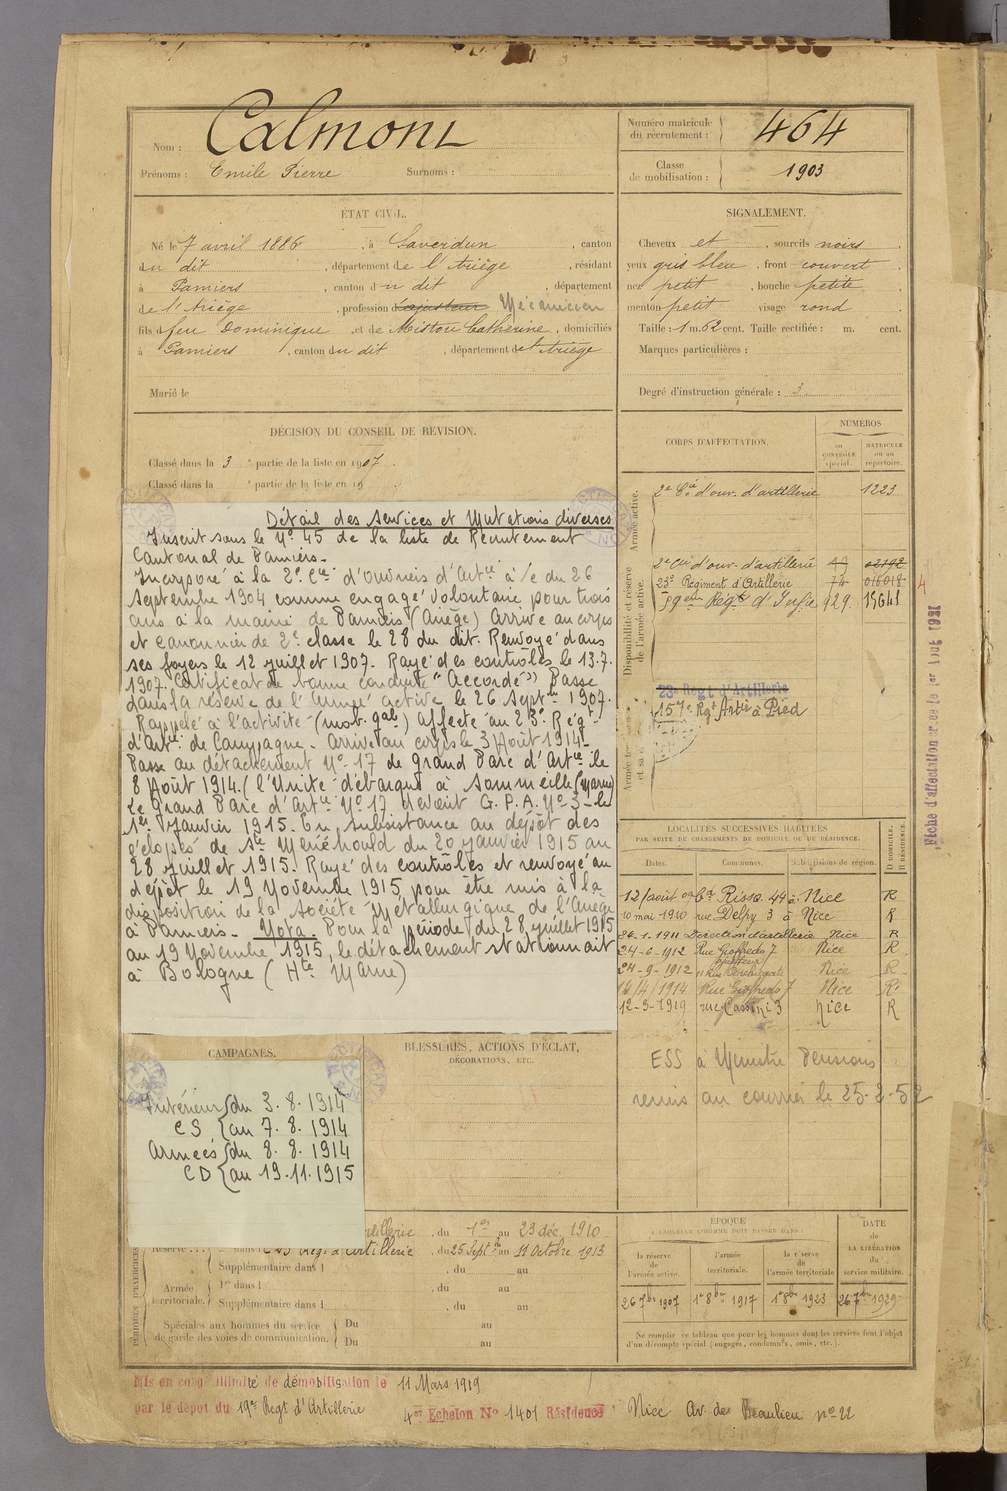 Nom : Calmont
Prénoms : Emile Pierre Surnoms :
Numéro matricule du recrutement : 464
Classe de mobilisation : 1903
ÉTAT CIVIL.
Né le 7 avril 1886, à Saverdun, canton
du dit, département de l'Ariège, résidant
à Pamiers, canton du dit, département
de l'Ariège, profession Mécanicien
fils de feu Dominique et de Mistou Catherine, domiciliés
à Pamiers, canton du dit, département de l'Ariège
Marié le
SIGNALEMENT.
Cheveux et, sourcils noirs
yeux gris bleu, front couvert
nez petit, bouche petite
menton petit visage rond
Taille : 1 m. 62 cent. Taille rectifiée : m. cent.
Marques particulières :
Degré d'instruction générale : 3
DÉCISION DU CONSEIL DE RÉVISION.
Classé dans la 3e partie de la liste en 1907.
Classé dans la e partie de la liste en 19 .
Détail des services et Mutations diverses
Inscrit sous le No 45 de la liste de Recrutement
Cantonal de Pamiers.
Incorporé à la 2e Cie d'ouvriers d'Artie à/c du 26
septembre 1904 comme engagé volontaire pour trois
ans à la mairie de Pamiers (Ariège) Arrivé au corps
et canonnier de 2e classe le 28 du dit. Renvoyé dans
ses foyers le 12 juillet 1907. Rayé des contrôles le 13.7.
1907. Certificat de bonne conduite "Accordé" Passé
dans la réserve de l'armée active le 26 Septe 1907.
Rappelé à l'activité (mob. gale) affecté au 23e Régt
d'Artie de Campagne. Arrivé au corps le 3 Août 1914.
Passé au détachement No 17 de Grand Parc d'Artie le
8 Août 1914. (l'Unité débarque à Sommeille (Marne)
Le Grand Parc d'Artie No 17 devient G.P.A. No 3 le
1er Janvier 1915. En subsistance au dépôt des
éclopés de Ste Menehould du 20 janvier 1915 au
28 juillet 1915. Rayé des contrôles et renvoyé au
dépôt le 19 Novembre 1915 pour être mis à la
disposition de la Société métallurgique de l'Ariège
à Pamiers. Nota. Pour la période du 28 juillet 1915
au 19 Novembre 1915, le détachement stationnait
à Bologne (Hte Marne)
CORPS D'AFFECTATION.
NUMÉROS
au CONTRÔLE spécial.
MATRICULE ou au répertoire.
Armée active.
2e Cie d'ouv. d'artillerie 1223
Disponibilité et réserve de l'armée active.
2e Cie d'ouv. d'artillerie
23e Régiment d'Artillerie 74 016018
59ème Régt d'Infie 929 15641
23e Regt d'Artillerie
157e Rgt Artie à Pied
Fiche d'affectation
LOCALITÉS SUCCESSIVES HABITÉES
PAR SUITE DE CHANGEMENTS DE DOMICILE OU DE RÉSIDENCE.
Dates. Communes. Subdivisions de région. D DOMICILE. R RÉSIDENCE.
12/août 09 Bd Risso 44 à Nice R
10 mai 1910 rue Delpy 3 à Nice R
26.1.1911 Direction d'artillerie Nice R
24-6-1912 Rue Gioffredo 7 Nice R
24-9-1912 Nice R
16/4/1914 Rue Gioffredo 7 Nice R
12-3-1919 rue Cassini 3 Nice R
ESS à Ministre Pensions
remis au courrier le 25-2-52
CAMPAGNES.
Intérieur du 3.8.1914
CS au 7.8.1914
Armées du 8.8.1914
CD au 19.11.1915
BLESSURES, ACTIONS D'ÉCLAT,
DÉCORATIONS, ETC.
PÉRIODES D'EXERCICES
artillerie, du 1er au 23 déc. 1910
Réserve dans l 23 Régt d'Artillerie, du 25 Sept. au 11 Octobre 1913
Supplémentaire dans l , du au
Armée territoriale.
1re dans l , du au
Supplémentaire dans l , du au
Spéciales aux hommes du service de garde des voies de communication.
Du au
Du au
ÉPOQUE
À LAQUELLE L'HOMME DOIT PASSER DANS
la réserve de l'armée active.
l'armée territoriale.
la réserve de l'armée territoriale
DATE de LA LIBÉRATION du service militaire.
26 7bre 1907 1er 8bre 1917 1er 8bre 1923 26 7bre 1929
Ne remplir ce tableau que pour les hommes dont les services font l'objet
d'un décompte spécial (engagés, condamnés, omis, etc.).
Mis en congé illimité de démobilisation le 11 Mars 1919
par le dépôt du 19e Regt d'Artillerie 4er Echelon No 1401 Résidence Nice Av. de Beaulieu no 22